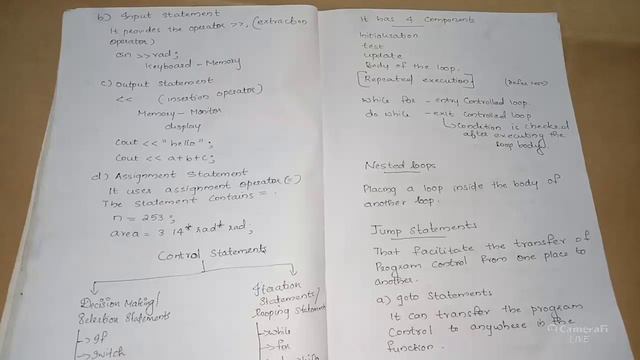 b) Input statement
It provides the operator >>, (extraction
operator)
cin >> rad;
Keyboard - Memory
c) Output statement
<< (insertion operator)
Memory - Monitor
display
Cout << "hello";
Cout << a+b+c;
d) Assignment Statement
It uses assignment operator (=)
The statement contains =.
n = 253;
area = 3.14* rad* rad;
Control Statements
Decision Making/
Selection Statements
→ if
→ switch
Iteration
Statements/
Looping Statement
→ while
→ for
It has 4 Components
Initialisation
test
update
Body of the loop.
[Repeated execution]
while for - entry Controlled loop.
do while - exit Controlled loop
↳ Condition is checked
after executing the
loop body
Nested loops
Placing a loop inside the body of
another loop.
Jump statements
That facilitate the transfer of
Program control from one place to
another.
a) goto Statements
It can transfer the program
Control to anywhere in the
function.
CameraFi
LIVE